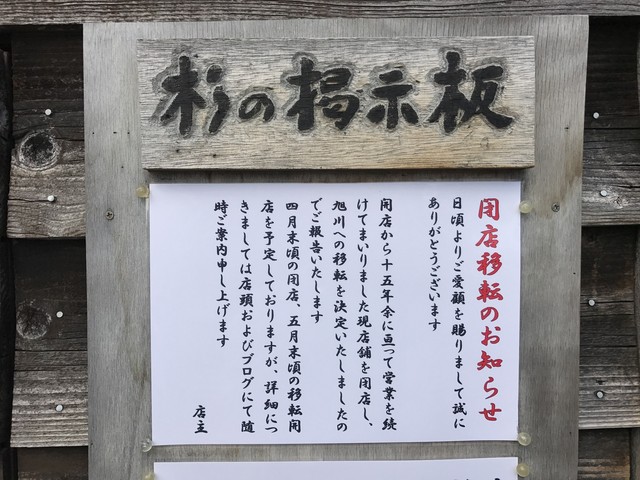 杉の掲示板
閉店移転のお知らせ
日頃よりご愛顧を賜りまして誠に
ありがとうございます
開店から十五年余に亘って営業を続
けてまいりました現店舗を閉店し、
旭川への移転を決定いたしましたの
でご報告いたします
四月末頃の閉店、五月末頃の移転開
店を予定しておりますが、詳細につ
きましては店頭およびブログにて随
時ご案内申し上げます
店主